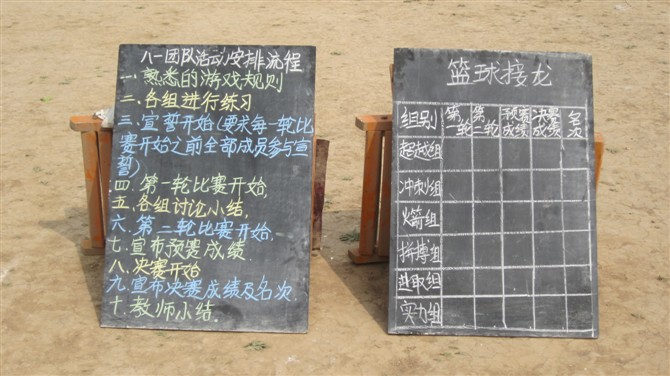 八一团队活动安排流程
一.熟悉的游戏规则
二.各组进行练习
三.宣誓开始(要求每一轮比
赛开始之前全部成员参与宣
誓)
四.第一轮比赛开始.
五.各组讨论小结.
六.第二轮比赛开始.
七.宣布预赛成绩.
八.决赛开始
九.宣布决赛成绩及名次.
十.教师小结.
篮球接龙
组别 第一轮 第二轮 预赛成绩 决赛成绩 名次
超越组
冲刺组
火箭组
拼搏组
进取组
实力组